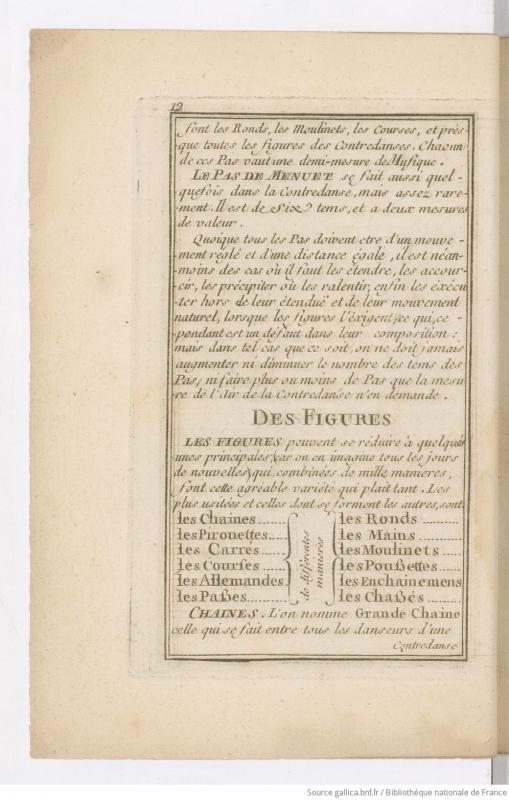 12
font les Ronds, les Moulinets, les Courses, et près-
que toutes les figures des Contredanses. Chacun
de ces Pas vaut une demi-mesure de Musique.
LE PAS DE MENUET se fait aussi quel-
quefois dans la Contredanse, mais assez rare-
ment. Il est de Six tems, et a deux mesures
de valeur.
Quoique tous les Pas doivent etre d'un mouve-
ment réglé et d'une distance égale, il est néan-
moins des cas où il faut les étendre, les accour-
cir, les précipiter où les ralentir, enfin les éxécu
ter hors de leur étenduë et de leur mouvement
naturel, lorsque les figures l'éxigent, ce qui, ce-
pendant est un défaut dans leur composition:
mais dans tel cas que ce soit, on ne doit jamais
augmenter ni diminuer le nombre des tems des
Pas, ni faire plus ou moins de Pas que la mesu
re de l'Air de la Contredanse n'en demande.
DES FIGURES
LES FIGURES peuvent se réduire à quelques
unes principales, car on en imagine tous les jours
de nouvelles, qui, combinées de mille manieres,
font cette agréable variété qui plait tant. Les
plus usitées et celles dont se forment les autres, sont.
les Chaines......
les Pirouettes....
les Carrés.....
les Courses....
les Allemandes
les Paßes......
de différentes
manieres
les Ronds.........
les Mains.....
les Moulinets....
les Poußettes.....
les Enchainemens
les Chaßés......
CHAINES. L'on nomme Grande Chaine
celle qui se fait entre tous les danseurs d'une
Contredanse
Source gallica.bnf.fr / Bibliothèque nationale de France